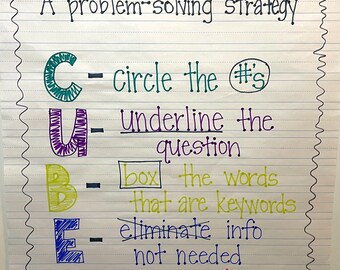 A problem-solving strategy
C - circle the #'s
U - underline the
question
B - box the words
that are keywords
E - eliminate info
not needed